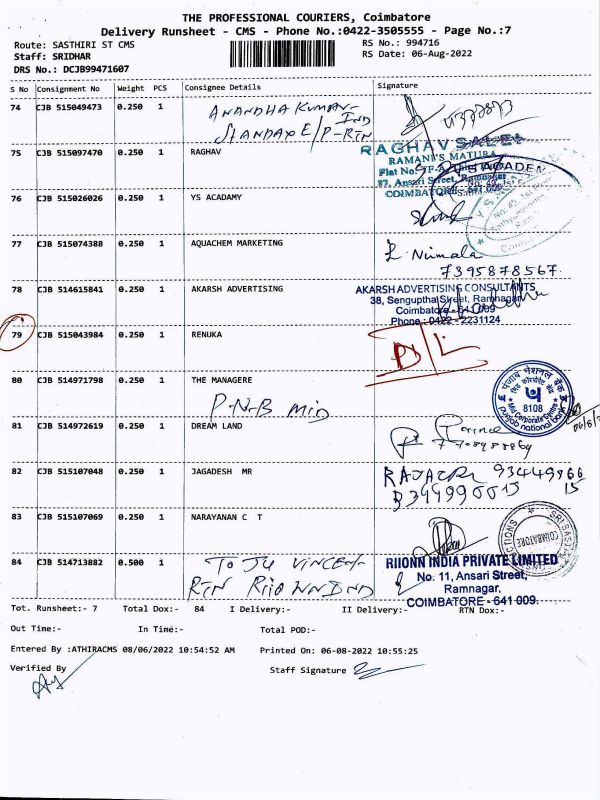 THE PROFESSIONAL COURIERS, Coimbatore
Delivery Runsheet - CMS - Phone No.:0422-3505555 - Page No.:7
Route: SASTHIRI ST CMS
Staff: SRIDHAR
DRS No.: DCJB99471607
RS No.: 994716
RS Date: 06-Aug-2022
S No Consignment No Weight PCS Consignee Details Signature
74 CJB 515049473 0.250 1
75 CJB 515097470 0.250 1 RAGHAV
RAMANI'S MATURA
87, Ansari Street, Ramnagar
COIMBATORE - 641 009.
76 CJB 515026026 0.250 1 YS ACADAMY
77 CJB 515074388 0.250 1 AQUACHEM MARKETING
Z. Nirmala
7395878567.
78 CJB 514615841 0.250 1 AKARSH ADVERTISING
AKARSH ADVERTISING CONSULTANTS
38, Senguptha Street, Ramnagar
Coimbatore - 641 009
Phone : 0422 - 2231124
79 CJB 515043984 0.250 1 RENUKA
D/L
80 CJB 514971798 0.250 1 THE MANAGERE
P.N.B MID
पंजाब नैशनल बैंक
8108
Mid Corporate Centre
punjab national bank
81 CJB 514972619 0.250 1 DREAM LAND
82 CJB 515107048 0.250 1 JAGADESH MR
83 CJB 515107069 0.250 1 NARAYANAN C T
COIMBATORE
84 CJB 514713882 0.500 1
RIIONN INDIA PRIVATE LIMITED
No. 11, Ansari Street,
Ramnagar,
COIMBATORE - 641 009.
Tot. Runsheet:- 7 Total Dox:- 84 I Delivery:- II Delivery:- RTN Dox:-
Out Time:- In Time:- Total POD:-
Entered By :ATHIRACMS 08/06/2022 10:54:52 AM Printed On: 06-08-2022 10:55:25
Verified By Staff Signature